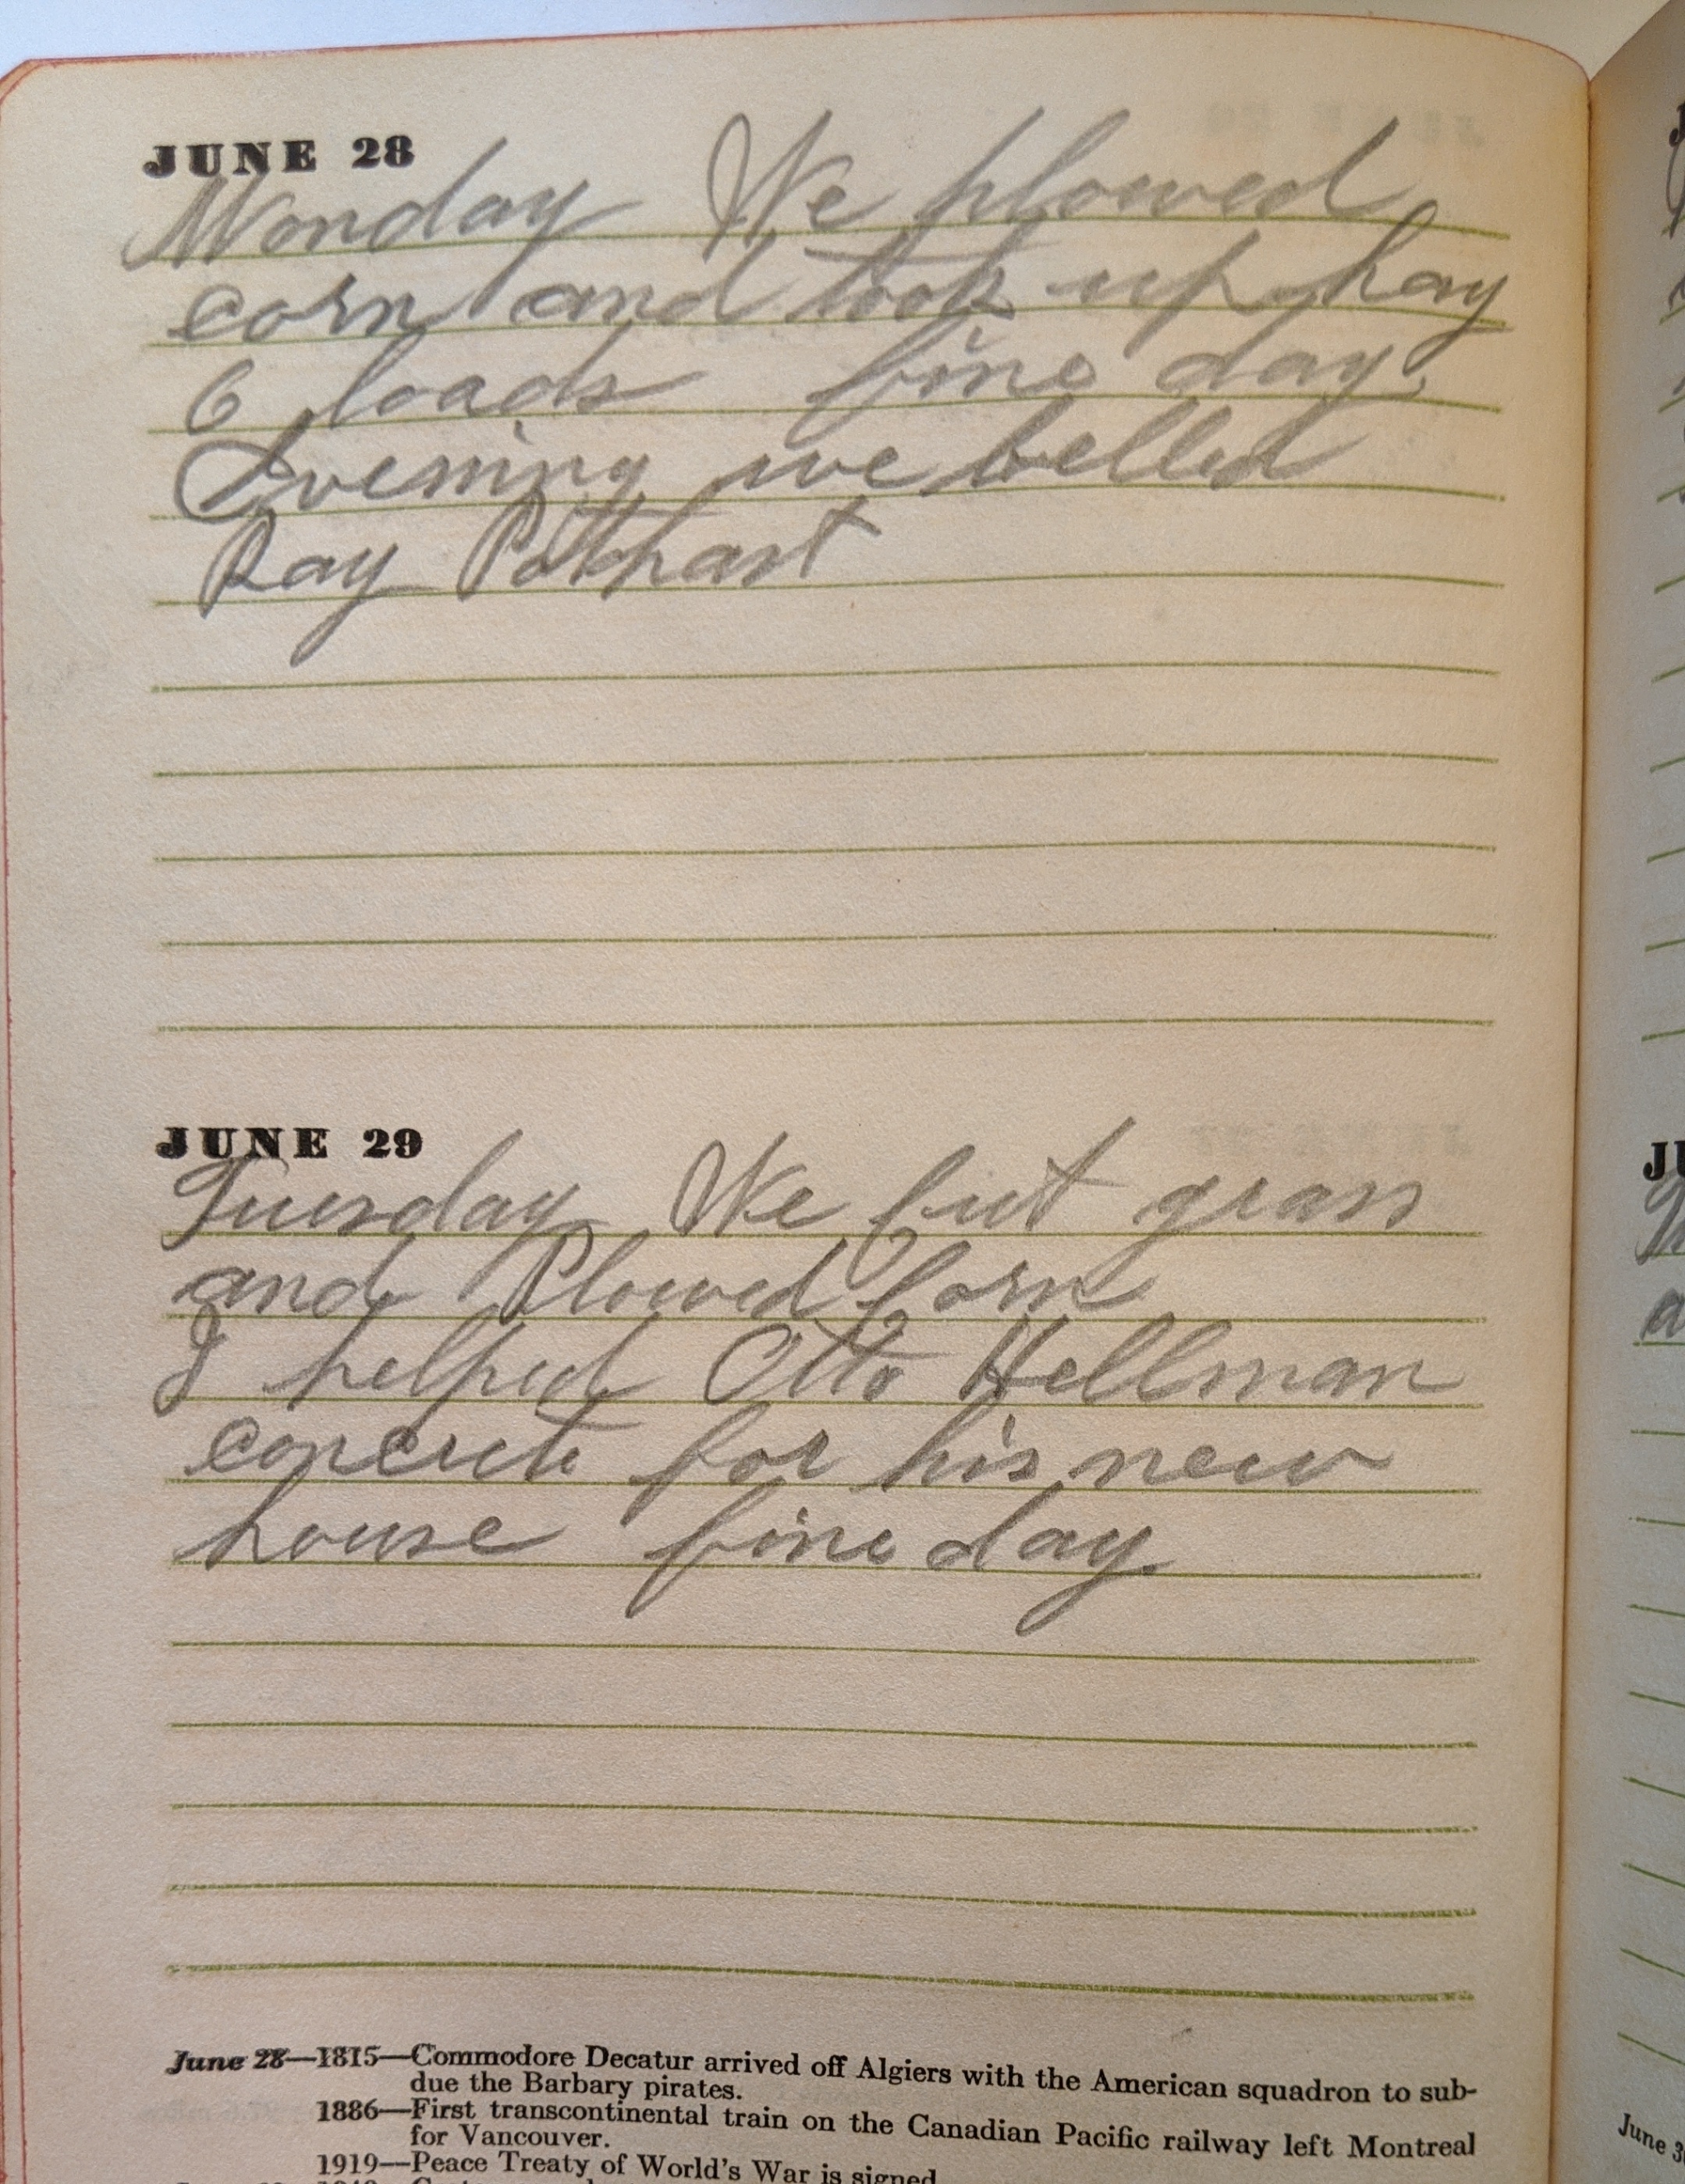 JUNE 28
Monday We plowed
corn and took up hay
6 loads fine day.
Evening we belled
Ray Potthast
JUNE 29
Tuesday We cut grass
and Plowed Corn
I helped Otto Hellman
concrete for his new
house fine day.
June 28—1815—Commodore Decatur arrived off Algiers with the American squadron to sub-
due the Barbary pirates.
1886—First transcontinental train on the Canadian Pacific railway left Montreal
for Vancouver.
1919—Peace Treaty of World's War is signed
June 3